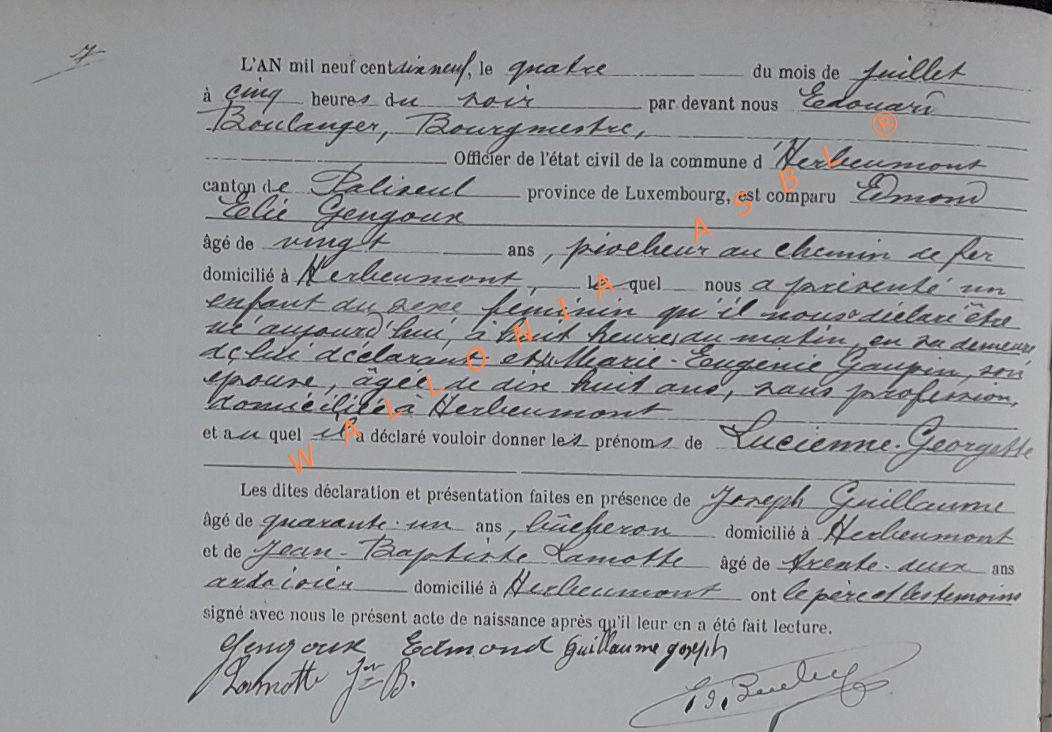 7
L'AN mil neuf cent dix neuf, le quatre du mois de juillet
à cinq heures du soir par devant nous Edouard
Boulanger, Bourgmestre,
Officier de l'état civil de la commune d'Herbeumont
canton de Paliseul province de Luxembourg, est comparu Edmond
Elie Gengoux
âgé de vingt ans, piocheur au chemin de fer
domicilié à Herbeumont, le quel nous a présenté un
enfant du sexe féminin qu'il nous a déclaré être
né aujourd'hui, à huit heures du matin, en sa demeure
de lui déclarant et de Marie-Eugénie Gaupin, son
épouse, âgée de dix huit ans, sans profession,
domiciliée à Herbeumont
et au quel il a déclaré vouloir donner les prénoms de Lucienne-Georgette
Les dites déclaration et présentation faites en présence de Joseph Guillaume
âgé de quarante-un ans, bûcheron domicilié à Herbeumont
et de Jean-Baptiste Lamotte âgé de trente-deux ans
ardoisier domicilié à Herbeumont ont le père et les témoins
signé avec nous le présent acte de naissance après qu'il leur en a été fait lecture.
Gengoux Edmond Guillaume Joseph
Lamotte Jn B.
WALLONIA ASBL ®